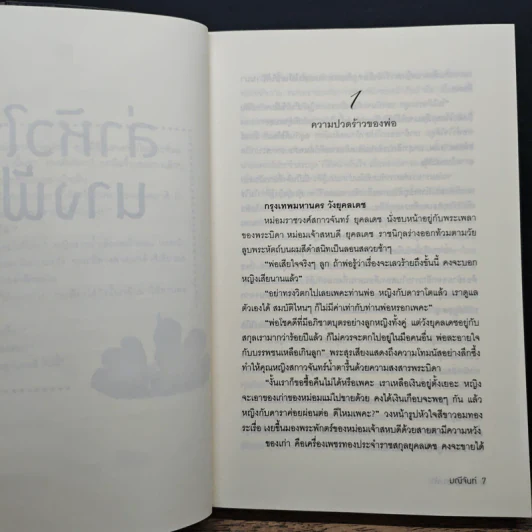 ล่าหัวใ
นางฟ้
1
ความปวดร้าวของพ่อ
กรุงเทพมหานคร วังยุคลเดช
หม่อมราชวงศ์สกาวจันทร์ ยุคลเดช นั่งซบหน้าอยู่กับพระเพลา
ของพระบิดา หม่อมเจ้าสหบดี ยุคลเดช ราชนิกุลร่างออกท้วมตามวัย
ลูบพระหัตถ์บนผมสีดำสนิทเป็นลอนสลวยช้าๆ
“พ่อเสียใจจริงๆ ลูก ถ้าพ่อรู้ว่าเรื่องจะเลวร้ายถึงขั้นนี้ คงจะบอก
หญิงเสียนานแล้ว”
“อย่าทรงวิตกไปเลยเพคะท่านพ่อ หญิงกับดาราโตแล้ว เราดูแล
ตัวเองได้ สมบัติไหนๆ ก็ไม่มีค่าเท่ากับท่านพ่อหรอกเพคะ”
“พ่อโชคดีที่มีอภิชาตบุตรอย่างลูกหญิงทั้งคู่ แต่วังยุคลเดชอยู่กับ
สกุลเรามากว่าร้อยปีแล้ว ก็ไม่ควรจะตกไปอยู่ในมือคนอื่น พ่อละอายใจ
กับบรรพชนเหลือเกินลูก” พระสุรเสียงแสดงถึงความโทมนัสอย่างลึกซึ้ง
ทำให้คุณหญิงสกาวจันทร์น้ำตารื้นด้วยความสงสารพระบิดา
“งั้นเราก็ขอซื้อคืนไม่ได้หรือเพคะ เราเหลือเงินอยู่ตั้งเยอะ หญิง
จะเอาของเก่าของหม่อมแม่ไปขายด้วย คงได้เงินเกือบจะพอๆ กัน แล้ว
หญิงกับดาราค่อยผ่อนต่อ ดีไหมเพคะ?” วงหน้ารูปหัวใจสีขาวอมทอง
ระเรื่อ เงยขึ้นมองพระพักตร์ของหม่อมเจ้าสหบดีด้วยสายตามีความหวัง
ของเก่า คือเครื่องเพชรทองประจำราชสกุลยุคลเดช คงจะขายได้
มณีจันท์ 7